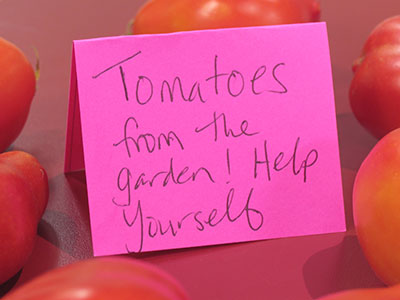 Tomatoes
from the
garden! Help
Yourself